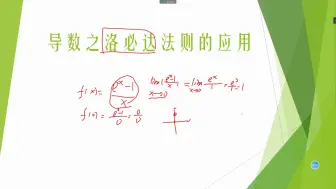 导数之洛必达法则的应用
f(x)= e^x-1/x lim x→0 e^x-1/x = lim x→0 e^x/1 = e^0/1 = 1
f(0)= e^0-1/0 = 0/0